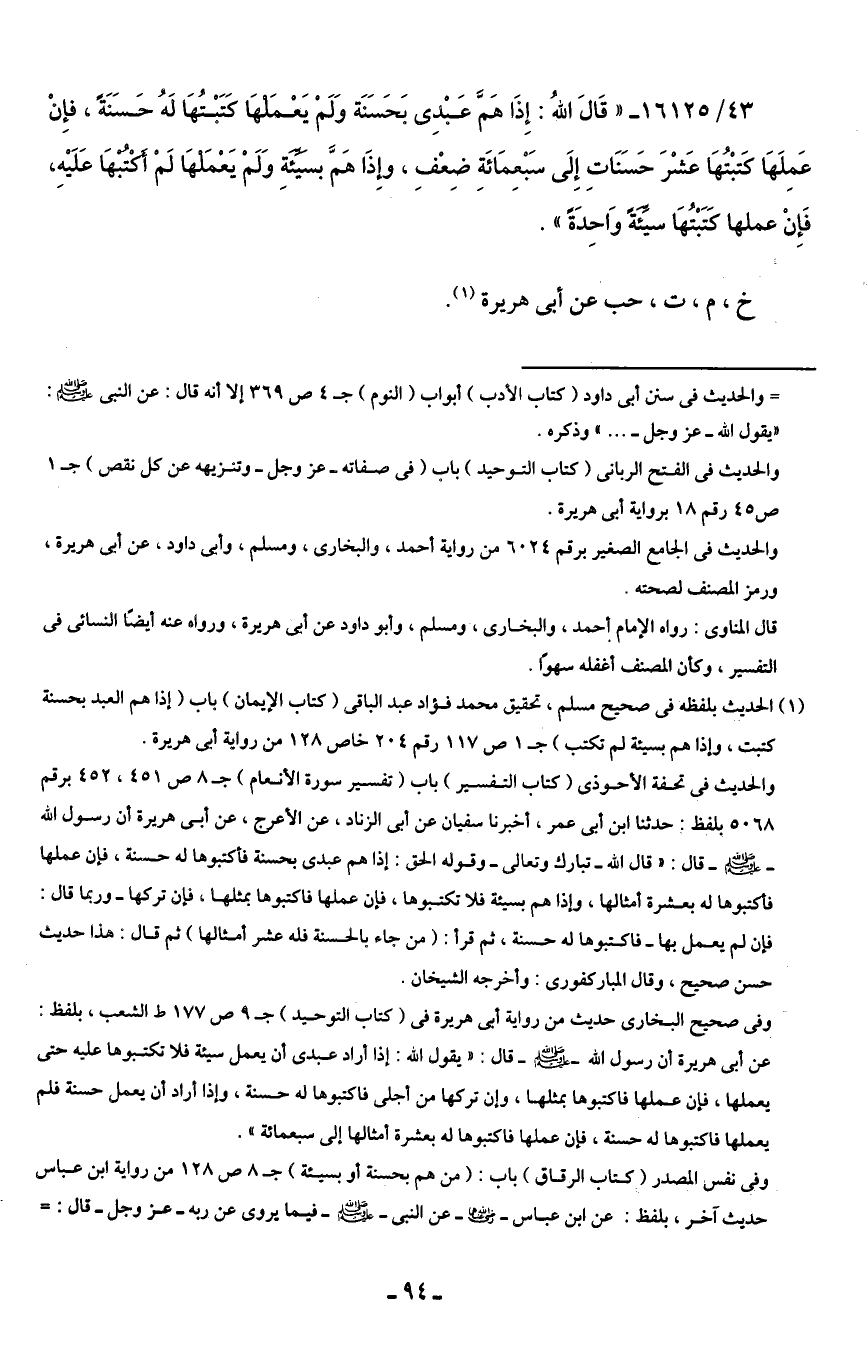 ٤٣/ ١٦١٢٥ـ « قَالَ اللهُ : إِذَا هَمَّ عَبْدِى بَحَسَنَة وَلَمْ يَعْمَلْهَا كَتَبْتُهَا لَهُ حَسَنَةً ، فإِنْ
عَمِلَهَا كَتَبْتُهَا عَشْرَ حَسَنَاتٍ إِلَى سَبْعِمَائَةِ ضِعْفٍ ، وإِذَا هَمَّ بسَيِّئَةٍ وَلَمْ يَعْمَلْهَا لَمْ أَكْتُبْهَا عَلَيْهِ،
فَإِنْ عملها كَتَبْتُهَا سيِّئَةً وَاحِدَةً » .
خ ، م ، ت ، حب عن أبى هريرة (١).
= والحديث فى سنن أبى داود ( كتاب الأدب ) أبواب ( النوم ) جـ ٤ ص ٣٦٩ إلا أنه قال : عن النبى ﷺ :
«يقول الله ـ عز وجل ـ ... » وذكره .
والحديث فى الفتح الربانى ( كتاب التوحيد ) باب ( فى صفاته ـ عز وجل ـ وتنزيهه عن كل نقص ) جـ ١
ص٤٥ رقم ١٨ برواية أبى هريرة .
والحديث فى الجامع الصغير برقم ٦٠٢٤ من رواية أحمد ، والبخارى ، ومسلم ، وأبى داود ، عن أبى هريرة ،
ورمز المصنف لصحته .
قال المناوى : رواه الإمام أحمد ، والبخارى ، ومسلم ، وأبو داود عن أبى هريرة ، ورواه عنه أيضًا النسائى فى
التفسير ، وكأن المصنف أغفله سهوًا .
(١) الحديث بلفظه فى صحيح مسلم ، تحقيق محمد فؤاد عبد الباقى ( كتاب الإيمان ) باب ( إذا هم العبد بحسنة
كتبت ، وإذا هم بسيئة لم تكتب ) جـ ١ ص ١١٧ رقم ٢٠٤ خاص ١٢٨ من رواية أبى هريرة .
والحديث فى تحفة الأحوذى ( كتاب التفسير ) باب ( تفسير سورة الأنعام ) جـ ٨ ص ٤٥١ ، ٤٥٢ برقم
٥٠٦٨ بلفظ : حدثنا ابن أبى عمر ، أخبرنا سفيان عن أبى الزناد ، عن الأعرج ، عن أبى هريرة أن رسول الله
ـ ﷺ ـ قال : « قال الله ـ تبارك وتعالى ـ وقوله الحق : إذا هم عبدى بحسنة فأكتبوها له حسنة ، فإن عملها
فأكتبوها له بعشرة أمثالها ، وإذا هم بسيئة فلا تكتبوها ، فإن عملها فاكتبوها بمثلها ، فإن تركها ـ وربما قال :
فإن لم يعمل بها ـ فاكتبوها له حسنة ، ثم قرأ : ( من جاء بالحسنة فله عشر أمثالها ) ثم قال : هذا حديث
حسن صحيح ، وقال المباركفورى : وأخرجه الشيخان .
وفى صحيح البخارى حديث من رواية أبى هريرة فى ( كتاب التوحيد ) جـ ٩ ص ١٧٧ ط الشعب ، بلفظ :
عن أبى هريرة أن رسول الله ـ ﷺ ـ قال : « يقول الله : إذا أراد عبدى أن يعمل سيئة فلا تكتبوها عليه حتى
يعملها ، فإن عملها فاكتبوها بمثلها ، وإن تركها من أجلى فاكتبوها له حسنة ، وإذا أراد أن يعمل حسنة فلم
يعملها فاكتبوها له حسنة ، فإن عملها فاكتبوها له بعشرة أمثالها إلى سبعمائة » .
وفى نفس المصدر ( كتاب الرقاق ) باب : ( من هم بحسنة أو بسيئة ) جـ ٨ ص ١٢٨ من رواية ابن عباس
حديث آخر ، بلفظ : عن ابن عباس ـ رضي الله عنهما ـ عن النبى ـ ﷺ ـ فيما يروى عن ربه ـ عز وجل ـ قال : =
ـ ٩٤ ـ